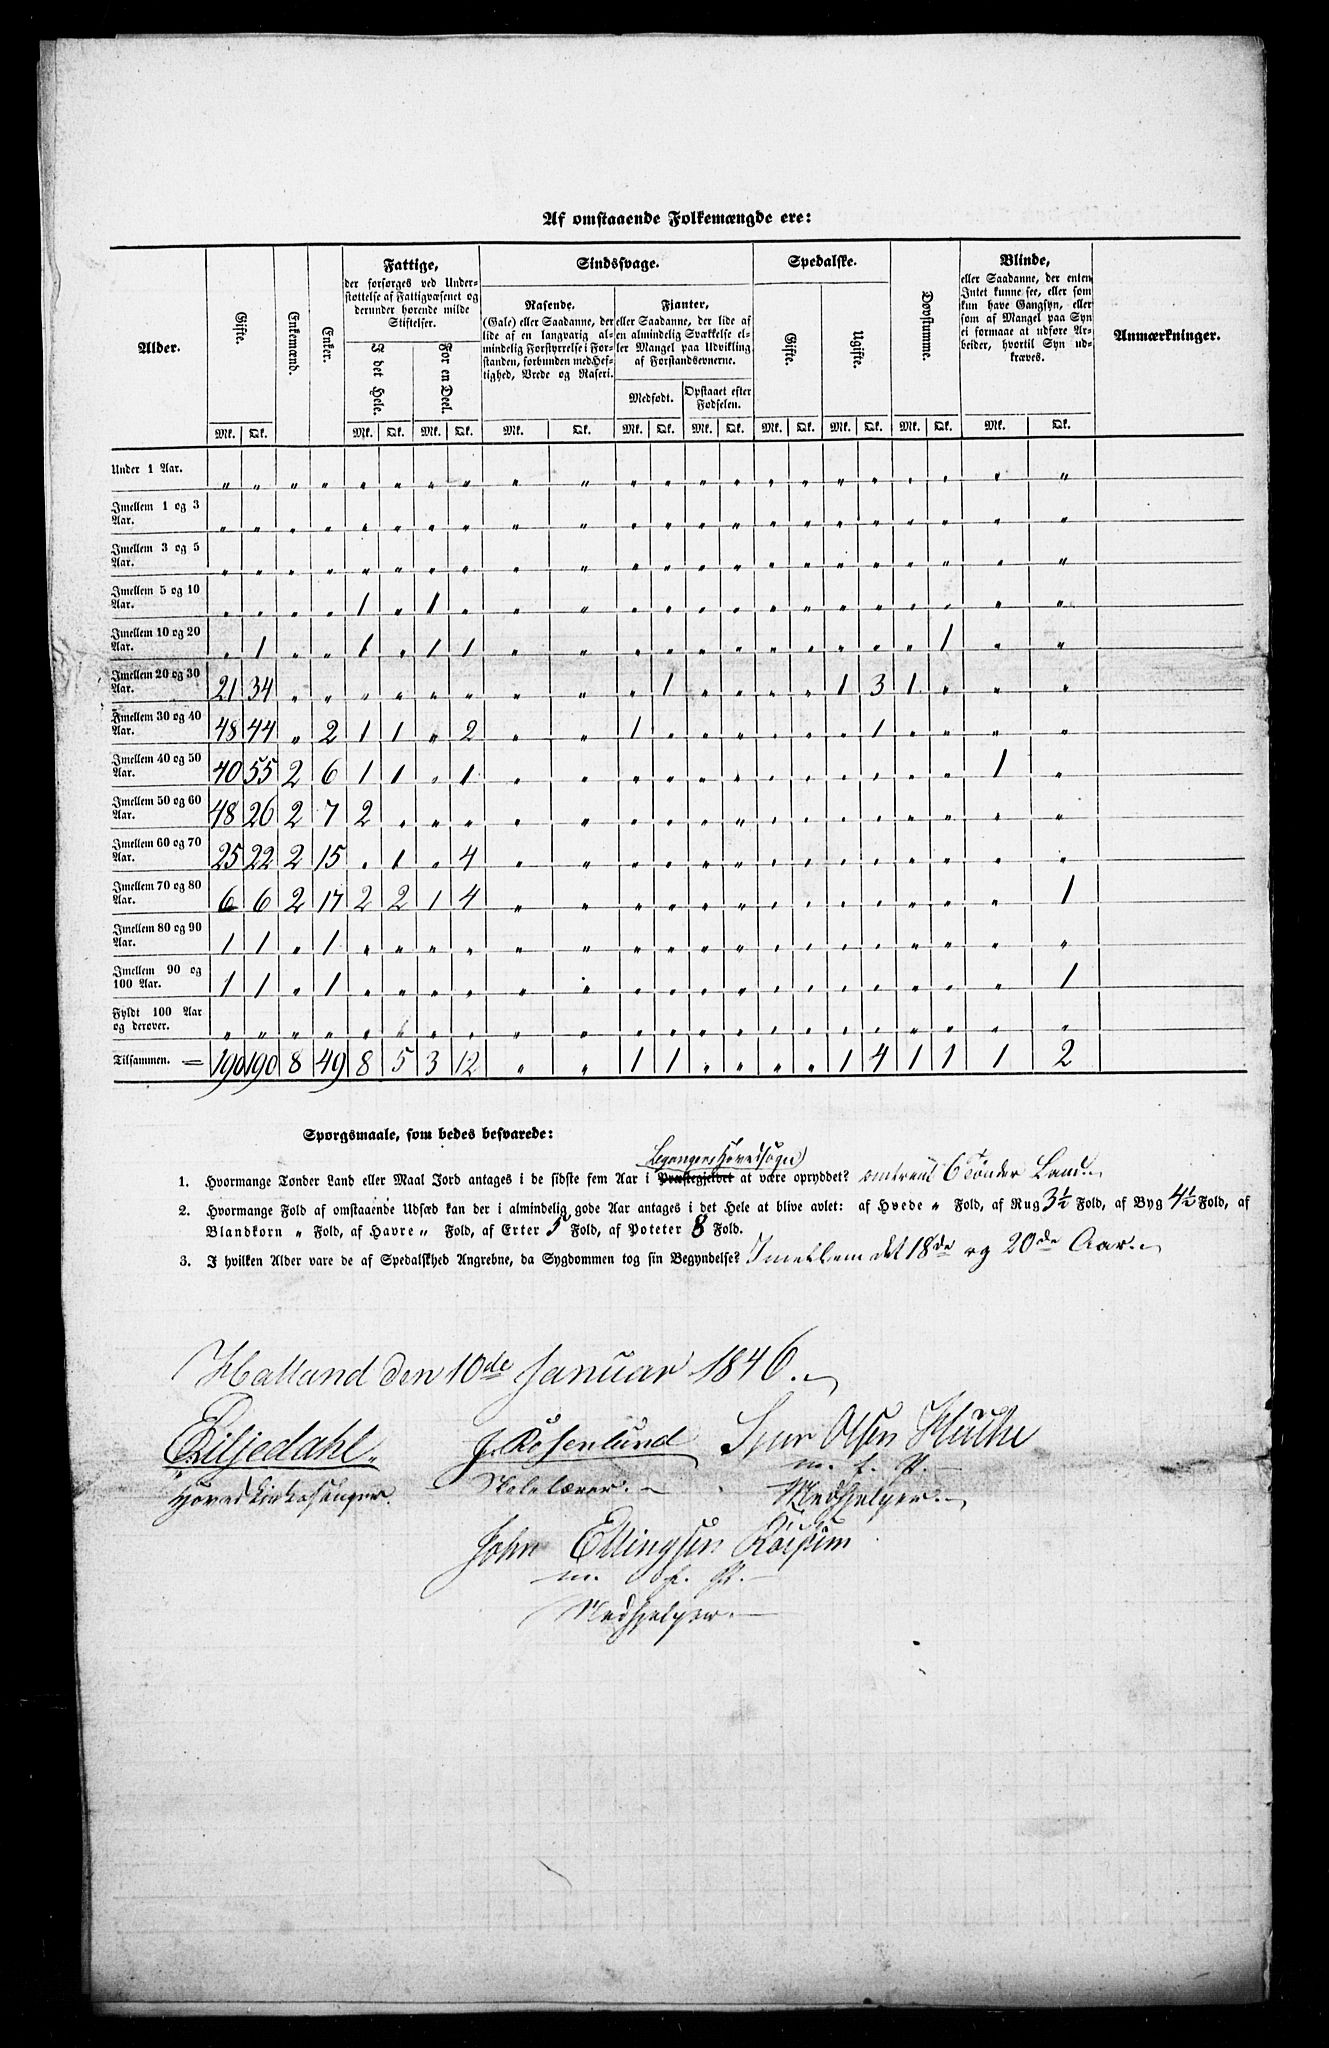 Af omstaaende Folkemængde ere:
Alder. Gifte. Enkemænd. Enker. Fattige, Sindssvage. Spedalske. Døvstumme. Blinde, Anmærkninger.
der forsørges ved Under-
støttelse af Fattigvæsenet og
derunder hørende milde
Stiftelser.
I det Hele. For en Deel.
Rasende.
(Gale) eller Saadanne, der
lide af en langvarig al-
mindelig Forstyrrelse i For-
standen, forbunden med Hef-
tighed, Vrede og Raseri.
Fjanter,
eller Saadanne, der lide af
en almindelig Svækkelse el-
ler Mangel paa Udvikling
af Forstandsevnerne.
Medfødt. Opstaaet efter
Fødselen.
Gifte. Ugifte.
eller Saadanne, der enten
Intet kunne see, eller som
kun have Gangsyn, eller
som af Mangel paa Syn
ei formaae at udføre Ar-
beider, hvortil Syn ud-
kræves.
Mk. Qk. Mk. Qk. Mk. Qk. Mk. Qk. Mk. Qk. Mk. Qk. Mk. Qk. Mk. Qk. Mk. Qk. Mk. Qk.
Under 1 Aar. " " " " " " " " " " " " " " " " " " " " " "
Imellem 1 og 3
Aar. " " " " " " " " " " " " " " " " " " " " " "
Imellem 3 og 5
Aar. " " " " " " " " " " " " " " " " " " " " " "
Imellem 5 og 10
Aar. " " " " 1 " 1 " " " " " " " " " " " " " " "
Imellem 10 og 20
Aar. " 1 " " 1 " 1 1 " " " " " " " " " " " 1 " "
Imellem 20 og 30
Aar. 21 34 " " " " " " " " " 1 " " " " 1 3 1 " " "
Imellem 30 og 40
Aar. 48 44 " 2 1 1 " 2 " " 1 " " " " " " 1 " " " "
Imellem 40 og 50
Aar. 40 55 2 6 1 1 " 1 " " " " " " " " " " " " 1 "
Imellem 50 og 60
Aar. 48 26 2 7 2 " " " " " " " " " " " " " " " " "
Imellem 60 og 70
Aar. 25 22 2 15 " 1 " 4 " " " " " " " " " " " " " "
Imellem 70 og 80
Aar. 6 6 2 17 2 2 1 4 " " " " " " " " " " " " " 1
Imellem 80 og 90
Aar. 1 1 " 1 " " " " " " " " " " " " " " " " " "
Imellem 90 og
100 Aar. 1 1 " 1 " " " " " " " " " " " " " " " " " 1
Fyldt 100 Aar
og derover. " " " " " " " " " " " " " " " " " " " " " "
Tilsammen. = 190 190 8 49 8 5 3 12 " " 1 1 " " " " 1 4 1 1 1 2
Spørgsmaale, som bedes besvarede:
Leganger Hovedsogn
1. Hvormange Tønder Land eller Maal Jord antages i de sidste fem Aar i Præstegjeldet at være opryddet? omtrent 6 Tønder Land.
2. Hvormange Fold af omstaaende Udsæd kan der i almindelig gode Aar antages i det Hele at blive avlet: af Hvede " Fold, af Rug 3½ Fold, af Byg 4½ Fold, af
Blandkorn " Fold, af Havre " Fold, af Erter 5 Fold, af Poteter 8 Fold.
3. I hvilken Alder vare de af Spedalskhed Angrebne, da Sygdommen tog sin Begyndelse? Imellem det 18de og 20de Aar.
Hatlund den 10de Januar 1846.
Liljedahl J. Rosenlund Olsen
Hovedkirkesanger. Skolelærer. m. f. P.
Medhjelper.
John Ellingsen
m. f. P.
Medhjelper.